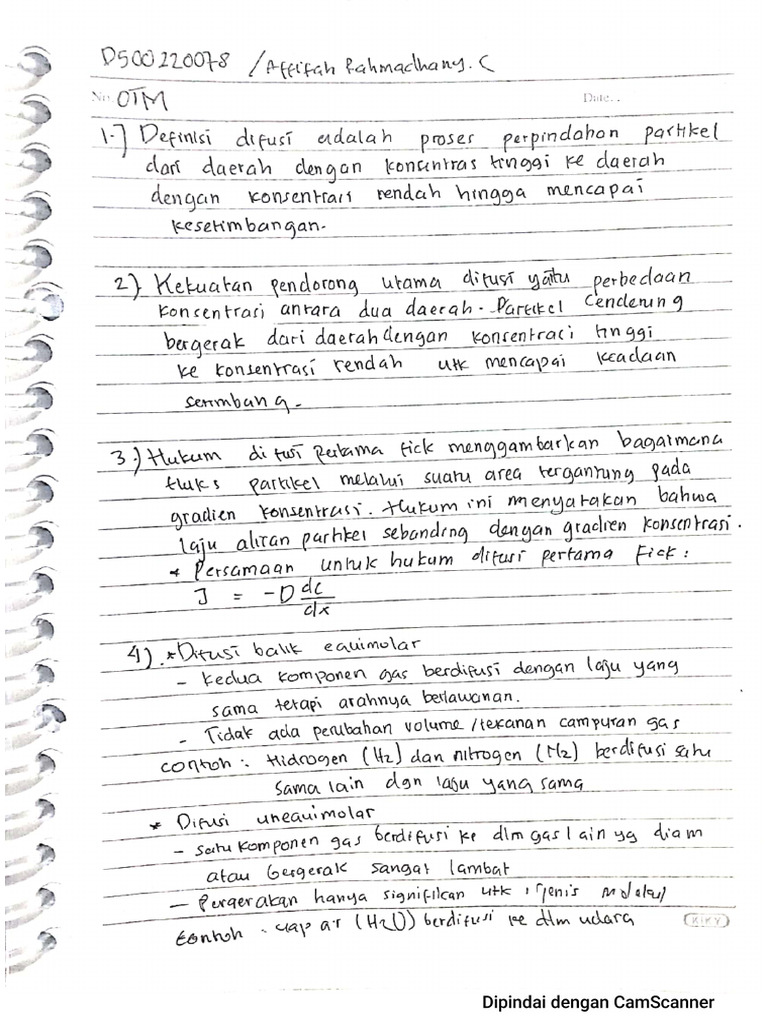 D500220078 / Affifah Rahmadhany. C
No. OTM Date..
1.) Definisi difusi adalah proses perpindahan partikel
dari daerah dengan konsentras tinggi ke daerah
dengan konsentrasi rendah hingga mencapai
kesetimbangan.
2) Kekuatan pendorong utama difusi yaitu perbedaan
konsentrasi antara dua daerah. Partikel Cenderung
bergerak dari daerah dengan konsentraci tinggi
ke konsentrasi rendah utk mencapai keadaan
setimbang.
3.) Hukum difusi Pertama fick menggambarkan bagaimana
fluks partikel melalui suatu area tergantung pada
gradien konsentrasi. Hukum ini menyatakan bahwa
laju aliran partikel sebanding dengan gradien konsentrasi.
* Persamaan untuk hukum difusi pertama Fick :
J = -D dc/dx
4). * Difusi balik equimolar
- kedua komponen gas berdifusi dengan laju yang
sama tetapi arahnya berlawanan.
- Tidak ada perubahan volume / tekanan campuran gas
contoh : Hidrogen (H2) dan nitrogen (N2) berdifusi satu
sama lain dgn laju yang sama
* Difusi unequimolar
- satu komponen gas berdifusi ke dlm gas lain yg diam
atau bergerak sangat lambat
- Pergerakan hanya signifikan utk 1 jenis molekul
Contoh : uap air (H2O) berdifusi ke dlm udara
KIKY
Dipindai dengan CamScanner